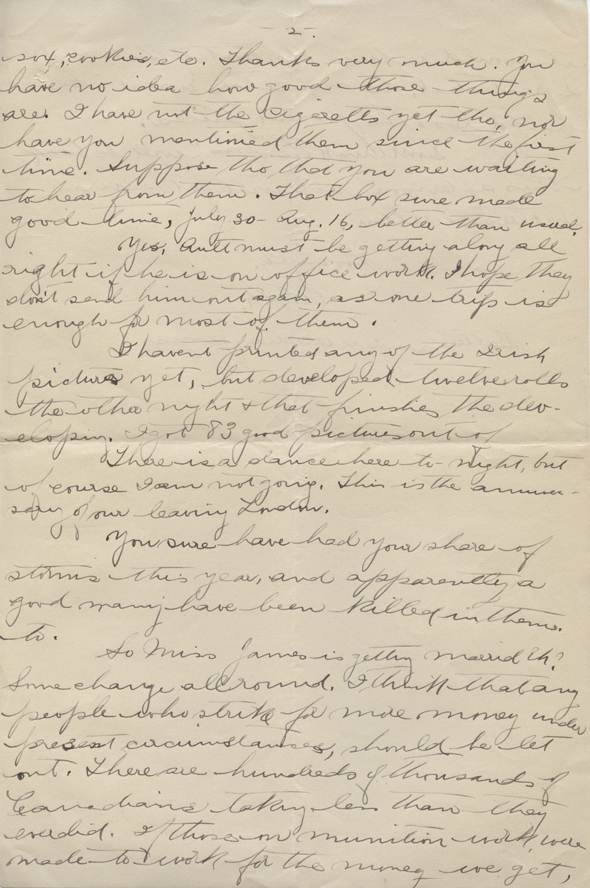 - 2 -
sox, cookies, etc. Thanks very much. You
have no idea how good those things
are. I have not the cigaretts yet tho, nor
have you mentioned them since the first
time. Suppose tho that you are waiting
to hear from them. That box sure made
good time, July 30 - Aug. 16, better than usual.
Yes, must be getting along all
right if he is on office work. I hope they
don't send him out again, as one trip is
enough for most of them.
I havent printed any of the Irish
pictures yet, but developed twelve rolls
the other night & that finishes the dev-
eloping. I got 83 good pictures out of
There is a dance here to-night, but
of course I am not going. This is the anniver-
sary of our leaving London.
You sure have had your share of
storms this year, and apparently a
good many have been killed in them.
to.
So Miss James is getting married Eh?
Some change all round. I think that any
people who strike for more money under
present circumstances, should be let
out. There are hundreds of thousands of
Canadians taking less than they
ever did. If those on munition work, were
made to work for the money we get,